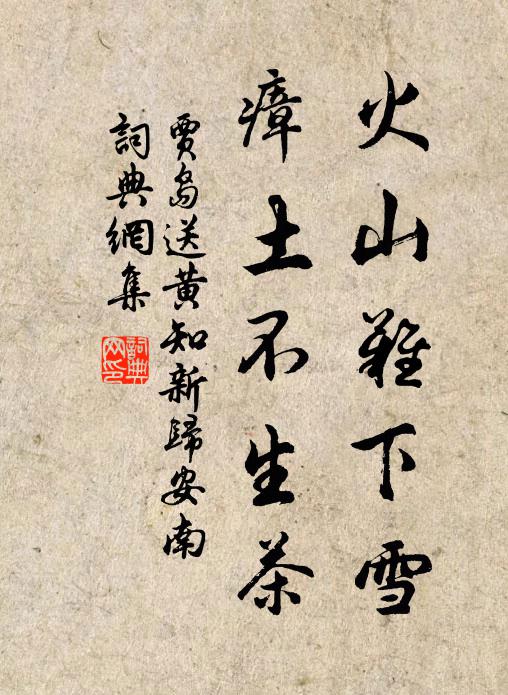 火山難下雪
瘴土不生茶
賈島送黄知新歸安南
詞典網集
詞典網印